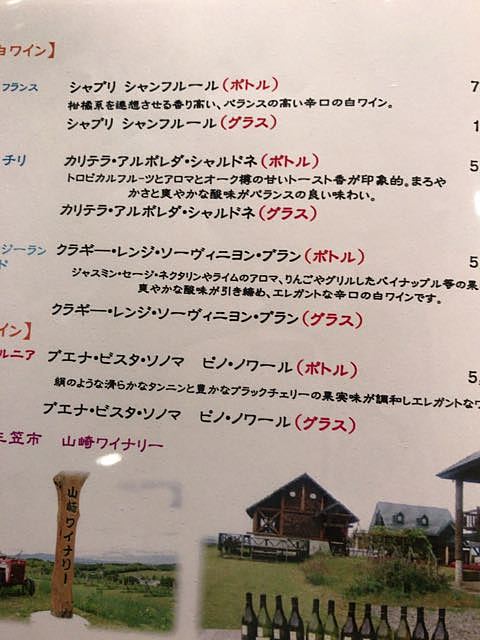 白ワイン】
フランス シャブリ シャンフルール(ボトル) 7
柑橘系を連想させる香り高い、バランスの高い辛口の白ワイン。
シャブリ シャンフルール(グラス) 1
チリ カリテラ・アルボレダ・シャルドネ(ボトル) 5
トロピカルフルーツとアロマとオーク樽の甘いトースト香が印象的。まろや
かさと爽やかな酸味がバランスの良い味わい。
カリテラ・アルボレダ・シャルドネ(グラス)
ジーラン
ド クラギー・レンジ・ソーヴィニヨン・ブラン(ボトル) 5
ジャスミン・セージ・ネクタリンやライムのアロマ、りんごやグリルしたパイナップル等の果
爽やかな酸味が引き締め、エレガントな辛口の白ワインです。
クラギー・レンジ・ソーヴィニヨン・ブラン(グラス)
イン】
ルニア ブエナ・ビスタ・ソノマ ピノ・ノワール(ボトル) 5,
絹のような滑らかなタンニンと豊かなブラックチェリーの果実味が調和しエレガントなワ
ブエナ・ビスタ・ソノマ ピノ・ノワール(グラス)
三笠市 山崎ワイナリー
山崎ワイナリー